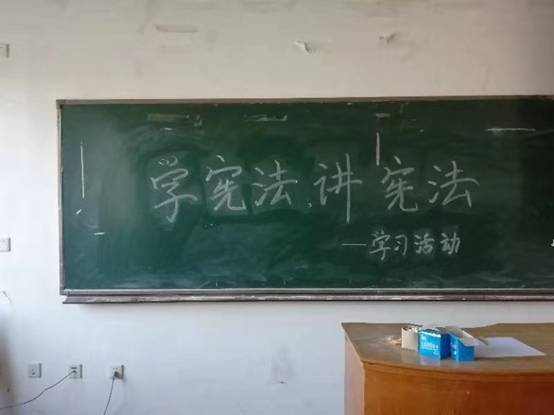 学宪法、讲宪法
—学习活动